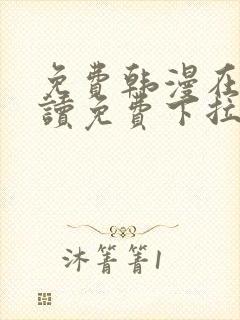 免費韩漫在
讀免費下拉
沐箐箐1